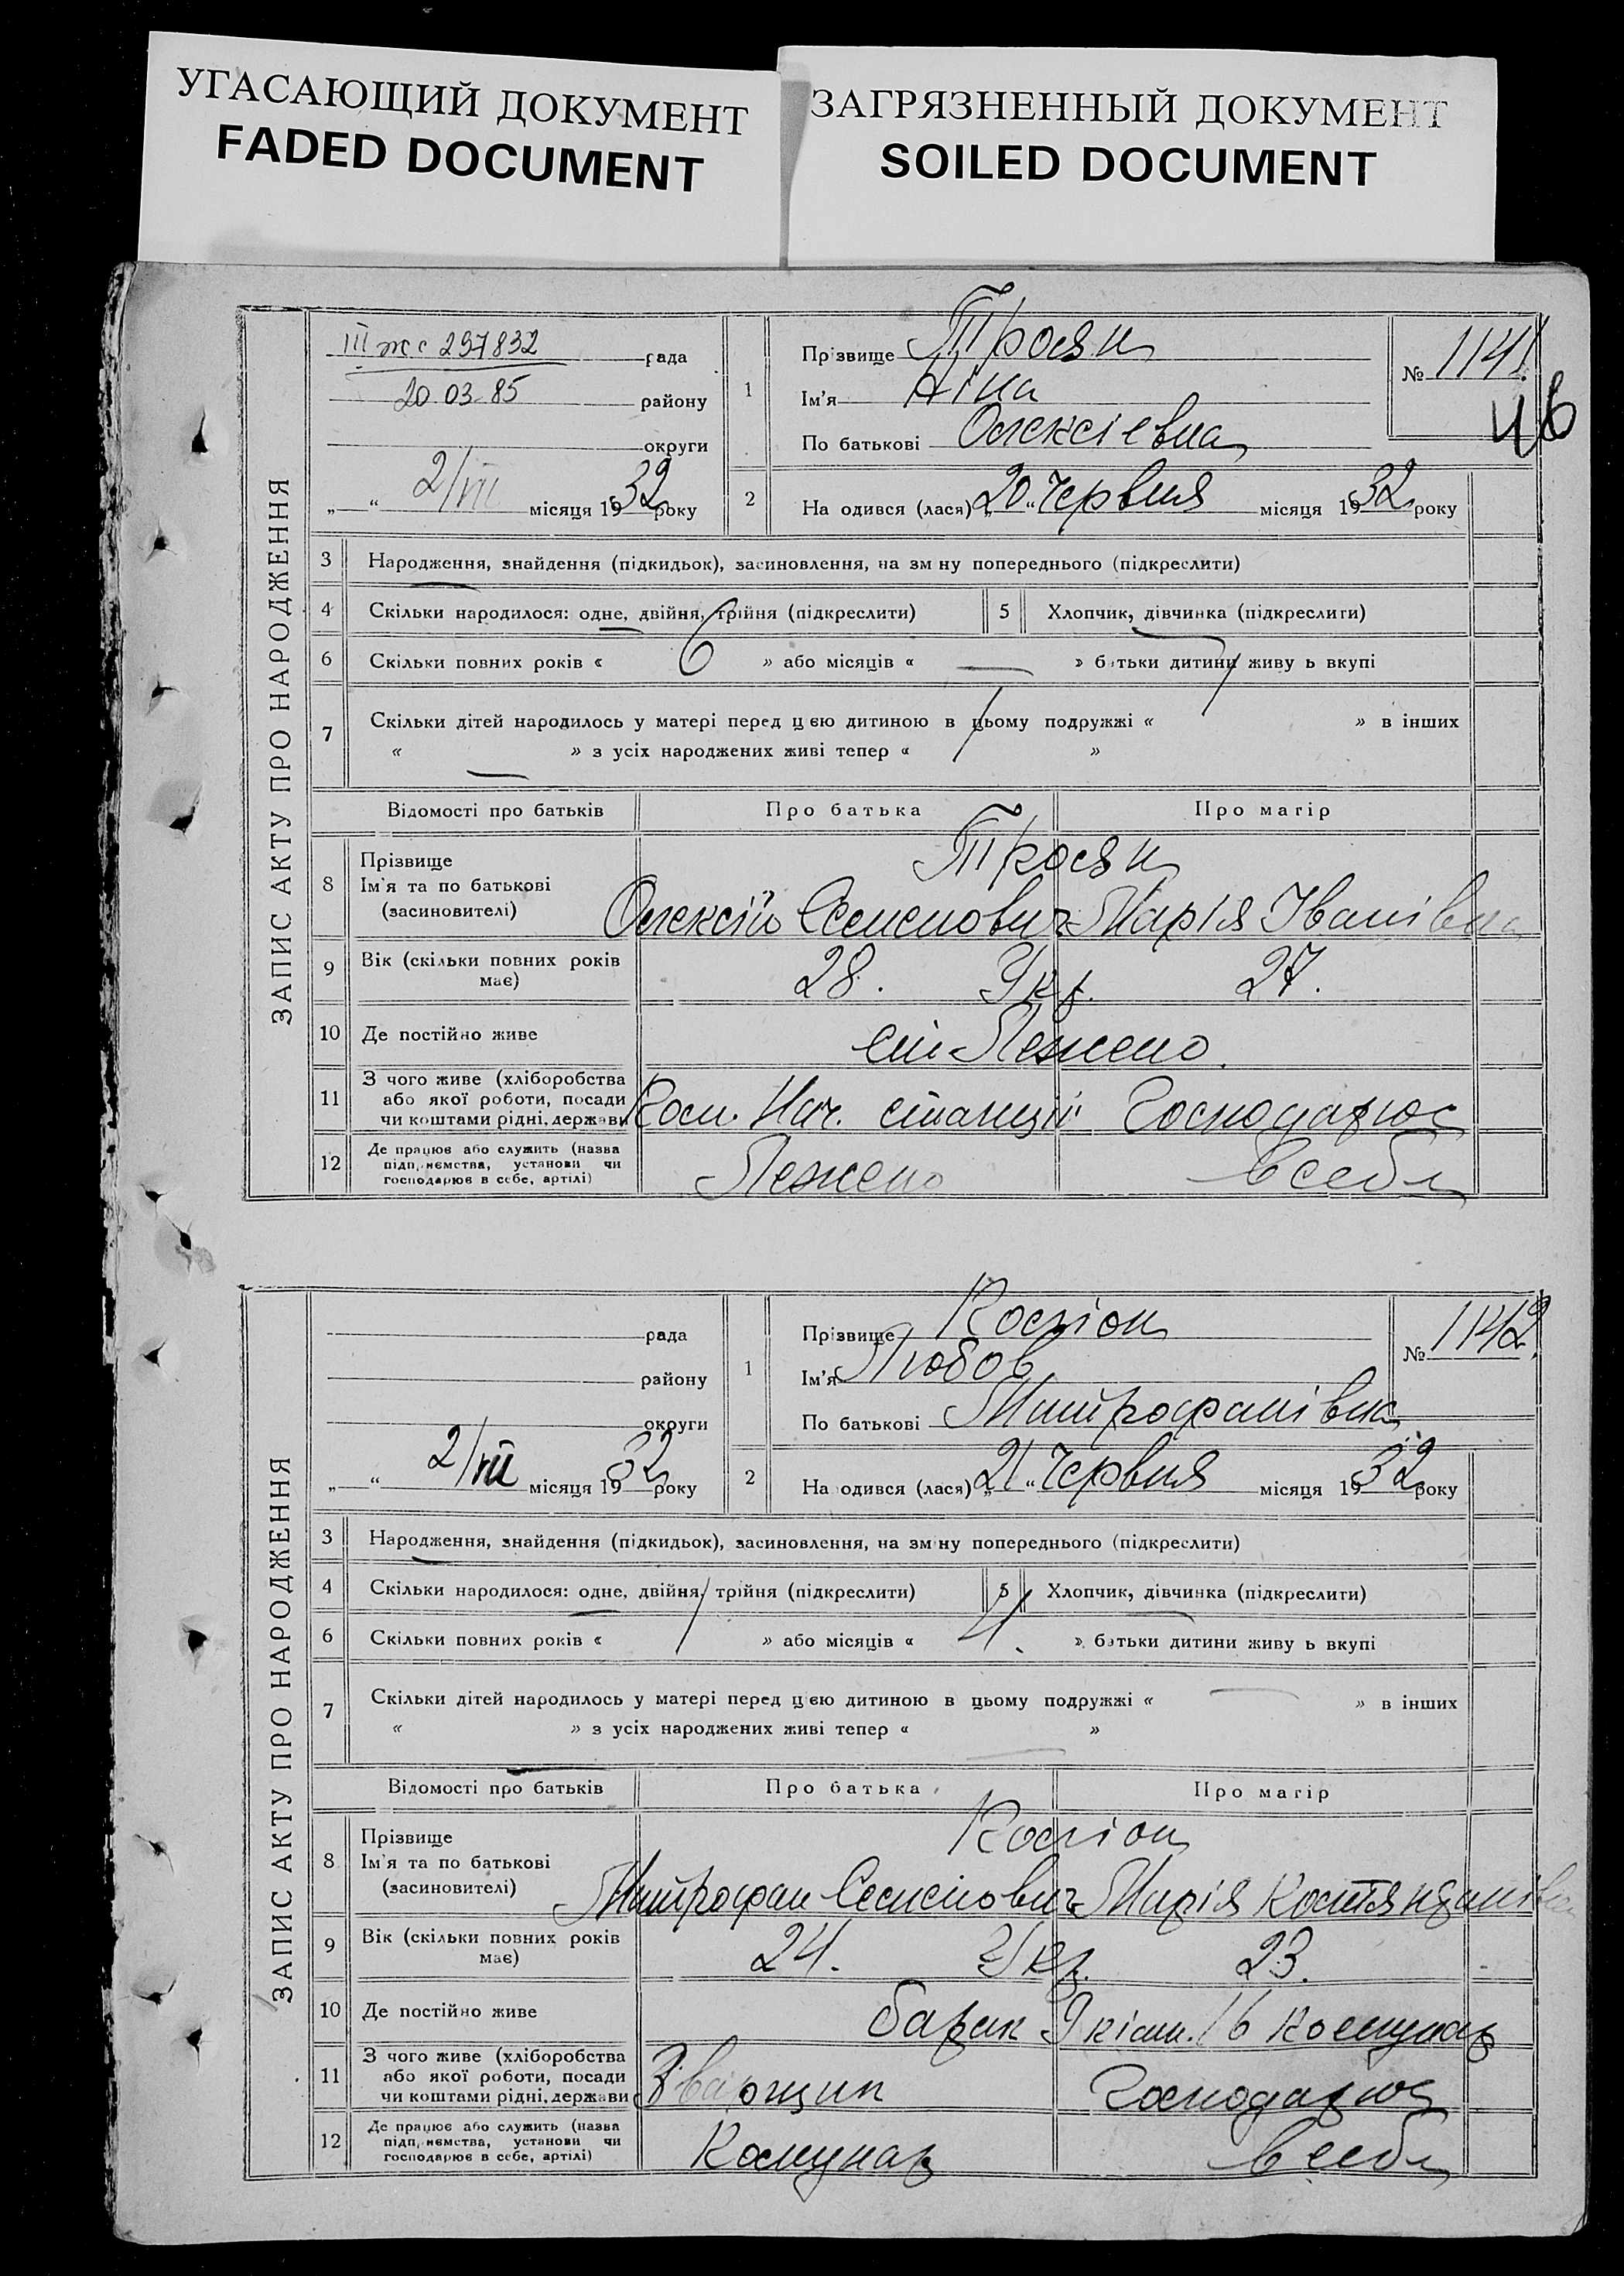 УГАСАЮЩИЙ ДОКУМЕНТ
FADED DOCUMENT
ЗАГРЯЗНЕННЫЙ ДОКУМЕНТ
SOILED DOCUMENT
ЗАПИС АКТУ ПРО НАРОДЖЕННЯ
III жс 297832 рада
20.03.85 району
округи
„ “ 2/VII місяця 1932 року
1
Прізвище Троян
Ім'я Ніна
По батькові Олексієвна
№ 1141.
46
2 На одився (лася) „20“ Червня місяця 1932 року
3 Народження, знайдення (підкидьок), засиновлення, на зм ну попереднього (підкреслити)
4 Скільки народилося: одне, двійня, трійня (підкреслити) 5 Хлопчик, дівчинка (підкреслити)
6 Скільки повних років « 6 » або місяців « — » батьки дитини живу ь вкупі
7 Скільки дітей народилось у матері перед цією дитиною в цьому подружжі « 1 » в інших
« — » з усіх народжених живі тепер « 1 »
Відомості про батьків Про батька Про матір
8 Прізвище Троян
Ім'я та по батькові
(засиновителі) Олексій Семенович Марія Іванівна
9 Вік (скільки повних років має) 28. Укр. 27.
10 Де постійно живе ст.
11 З чого живе (хліборобства
або якої роботи, посади
чи коштами рідні, держави Нач. станції Господарює
12 Де працює або служить (назва
підприємства, установи чи
господарює в себе, артілі) в себе
ЗАПИС АКТУ ПРО НАРОДЖЕННЯ
рада
району
округи
„ “ 2/VII місяця 1932 року
1
Прізвище
Ім'я Любов
По батькові Митрофанівна
№ 1142.
2 На одився (лася) „21“ Червня місяця 1932 року
3 Народження, знайдення (підкидьок), засиновлення, на зм ну попереднього (підкреслити)
4 Скільки народилося: одне, двійня, трійня (підкреслити) 5 Хлопчик, дівчинка (підкреслити)
6 Скільки повних років « 1 » або місяців « 4. » батьки дитини живу ь вкупі
7 Скільки дітей народилось у матері перед цією дитиною в цьому подружжі « — » в інших
« — » з усіх народжених живі тепер « — »
Відомості про батьків Про батька Про матір
8 Прізвище
Ім'я та по батькові
(засиновителі) Митрофан Семенович Марія
9 Вік (скільки повних років має) 24. Укр. 23.
10 Де постійно живе барак 9 кімн. 16 Комунар
11 З чого живе (хліборобства
або якої роботи, посади
чи коштами рідні, держави Зварщик Господарює
12 Де працює або служить (назва
підприємства, установи чи
господарює в себе, артілі) Комунар в себе